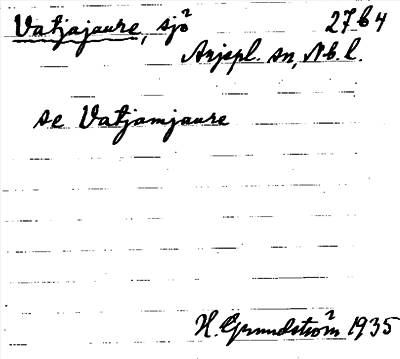 Vatjajaure, sjö 27 b 4
Arjepl. sn, Nb. l.
se Vatjamjaure
H. Grundström 1935